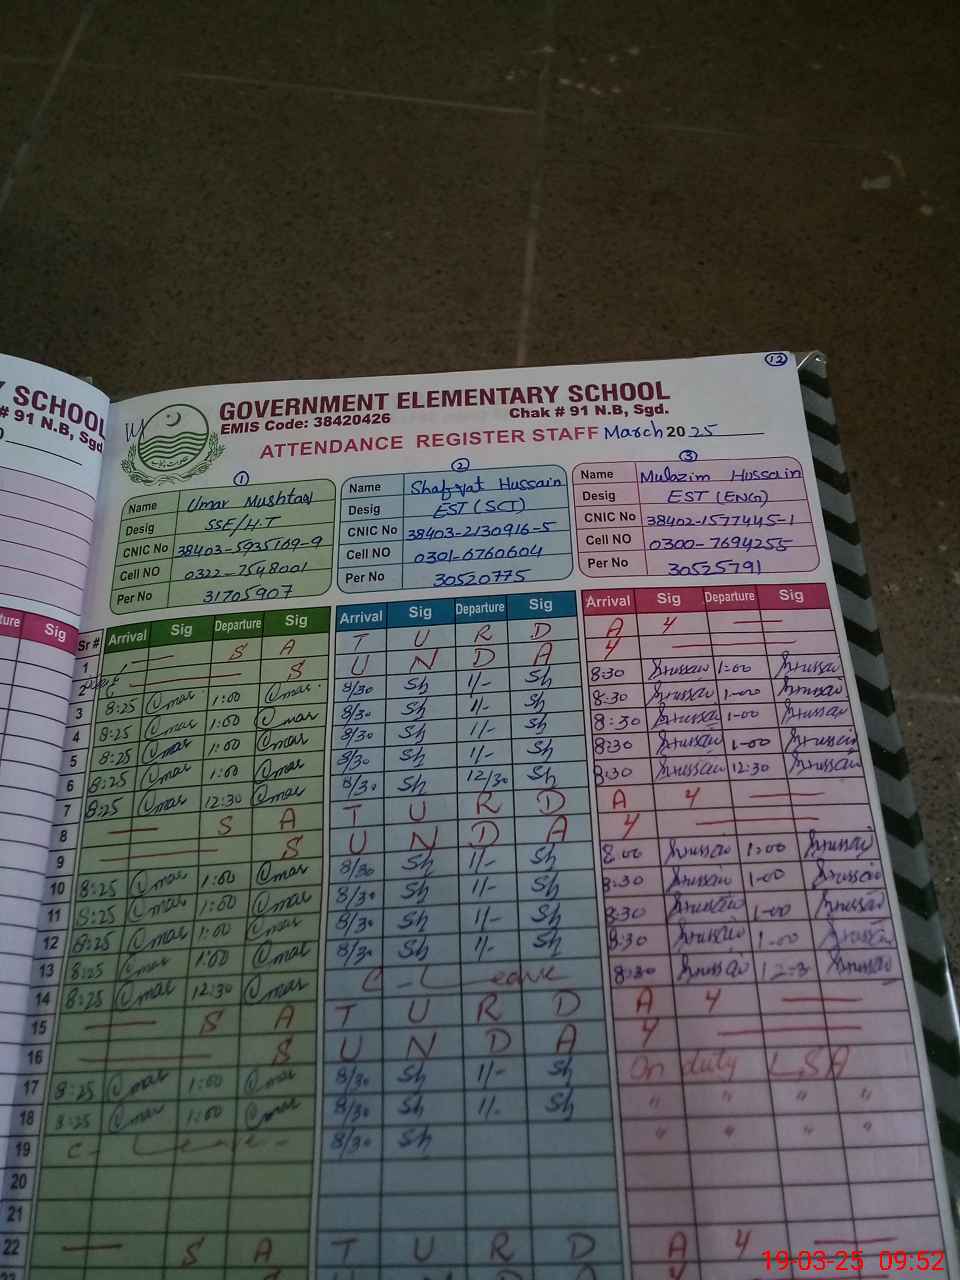 Y SCHOOL
# 91 N.B, Sgd.
ture Sig
12
GOVERNMENT ELEMENTARY SCHOOL
EMIS Code: 38420426 Chak # 91 N.B, Sgd.
ATTENDANCE REGISTER STAFF March 2025
1 2 3
Name Umar Mushtaq Name Shafqat Hussain Name Mulazim Hussain
Desig SSE/H.T Desig EST (SCI) Desig EST (ENG)
CNIC No 38403-5935169-9 CNIC No 38403-2130916-5 CNIC No 38402-1577445-1
Cell NO 0322-7548001 Cell NO 0301-6760604 Cell NO 0300-7694255
Per No 31705907 Per No 30520775 Per No 30525791
Sr # Arrival Sig Departure Sig Arrival Sig Departure Sig Arrival Sig Departure Sig
1 — S A T U R D A Y —
2 — S U N D A Y —
3 8:25 Umar 1:00 Umar 8/30 Sh 1/- Sh 8:30 Hussain 1:00 Hussain
4 8:25 Umar 1:00 Umar 8/30 Sh 1/- Sh 8:30 Hussain 1-00 Hussain
5 8:25 Umar 1:00 Umar 8/30 Sh 1/- Sh 8:30 Hussain 1-00 Hussain
6 8:25 Umar 1:00 Umar 8/30 Sh 1/- Sh 8:30 Hussain 1-00 Hussain
7 8:25 Umar 12:30 Umar 8/30 Sh 12/30 Sh 8:30 Hussain 12:30 Hussain
8 — S A T U R D A Y —
9 — S U N D A Y —
10 8:25 Umar 1:00 Umar 8/30 Sh 1/- Sh 8:00 Hussain 1:00 Hussain
11 8:25 Umar 1:00 Umar 8/30 Sh 1/- Sh 8:30 Hussain 1-00 Hussain
12 8:25 Umar 1:00 Umar 8/30 Sh 1/- Sh 8:30 Hussain 1-00 Hussain
13 8:25 Umar 1:00 Umar 8/30 Sh 1/- Sh 8:30 Hussain 1-00 Hussain
14 8:25 Umar 12:30 Umar C - Leave 8:30 Hussain 12-3 Hussain
15 — S A T U R D A Y —
16 — S U N D A Y —
17 8:25 Umar 1:00 Umar 8/30 Sh 1/- Sh On duty LSA
18 8:25 Umar 1:00 Umar 8/30 Sh 1/- Sh " " " "
19 C- Leave - 8/30 Sh " " " "
20
21
22 — S A T U R D A Y —
23
19-03-25 09:52